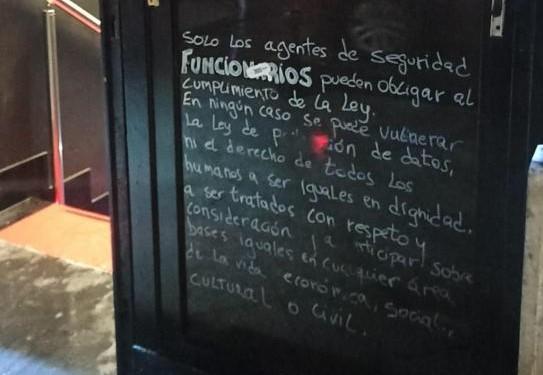 Solo los agentes de seguridad
FUNCIONARIOS pueden obligar al
cumplimiento de la ley.
En ningún caso se puede vulnerar
la ley de de datos,
ni el derecho de todos los
humanos a ser iguales en dignidad.
a ser tratados con respeto y
consideración sobre
bases iguales en cualquier área
de la vida económica, social,
cultural o civil.